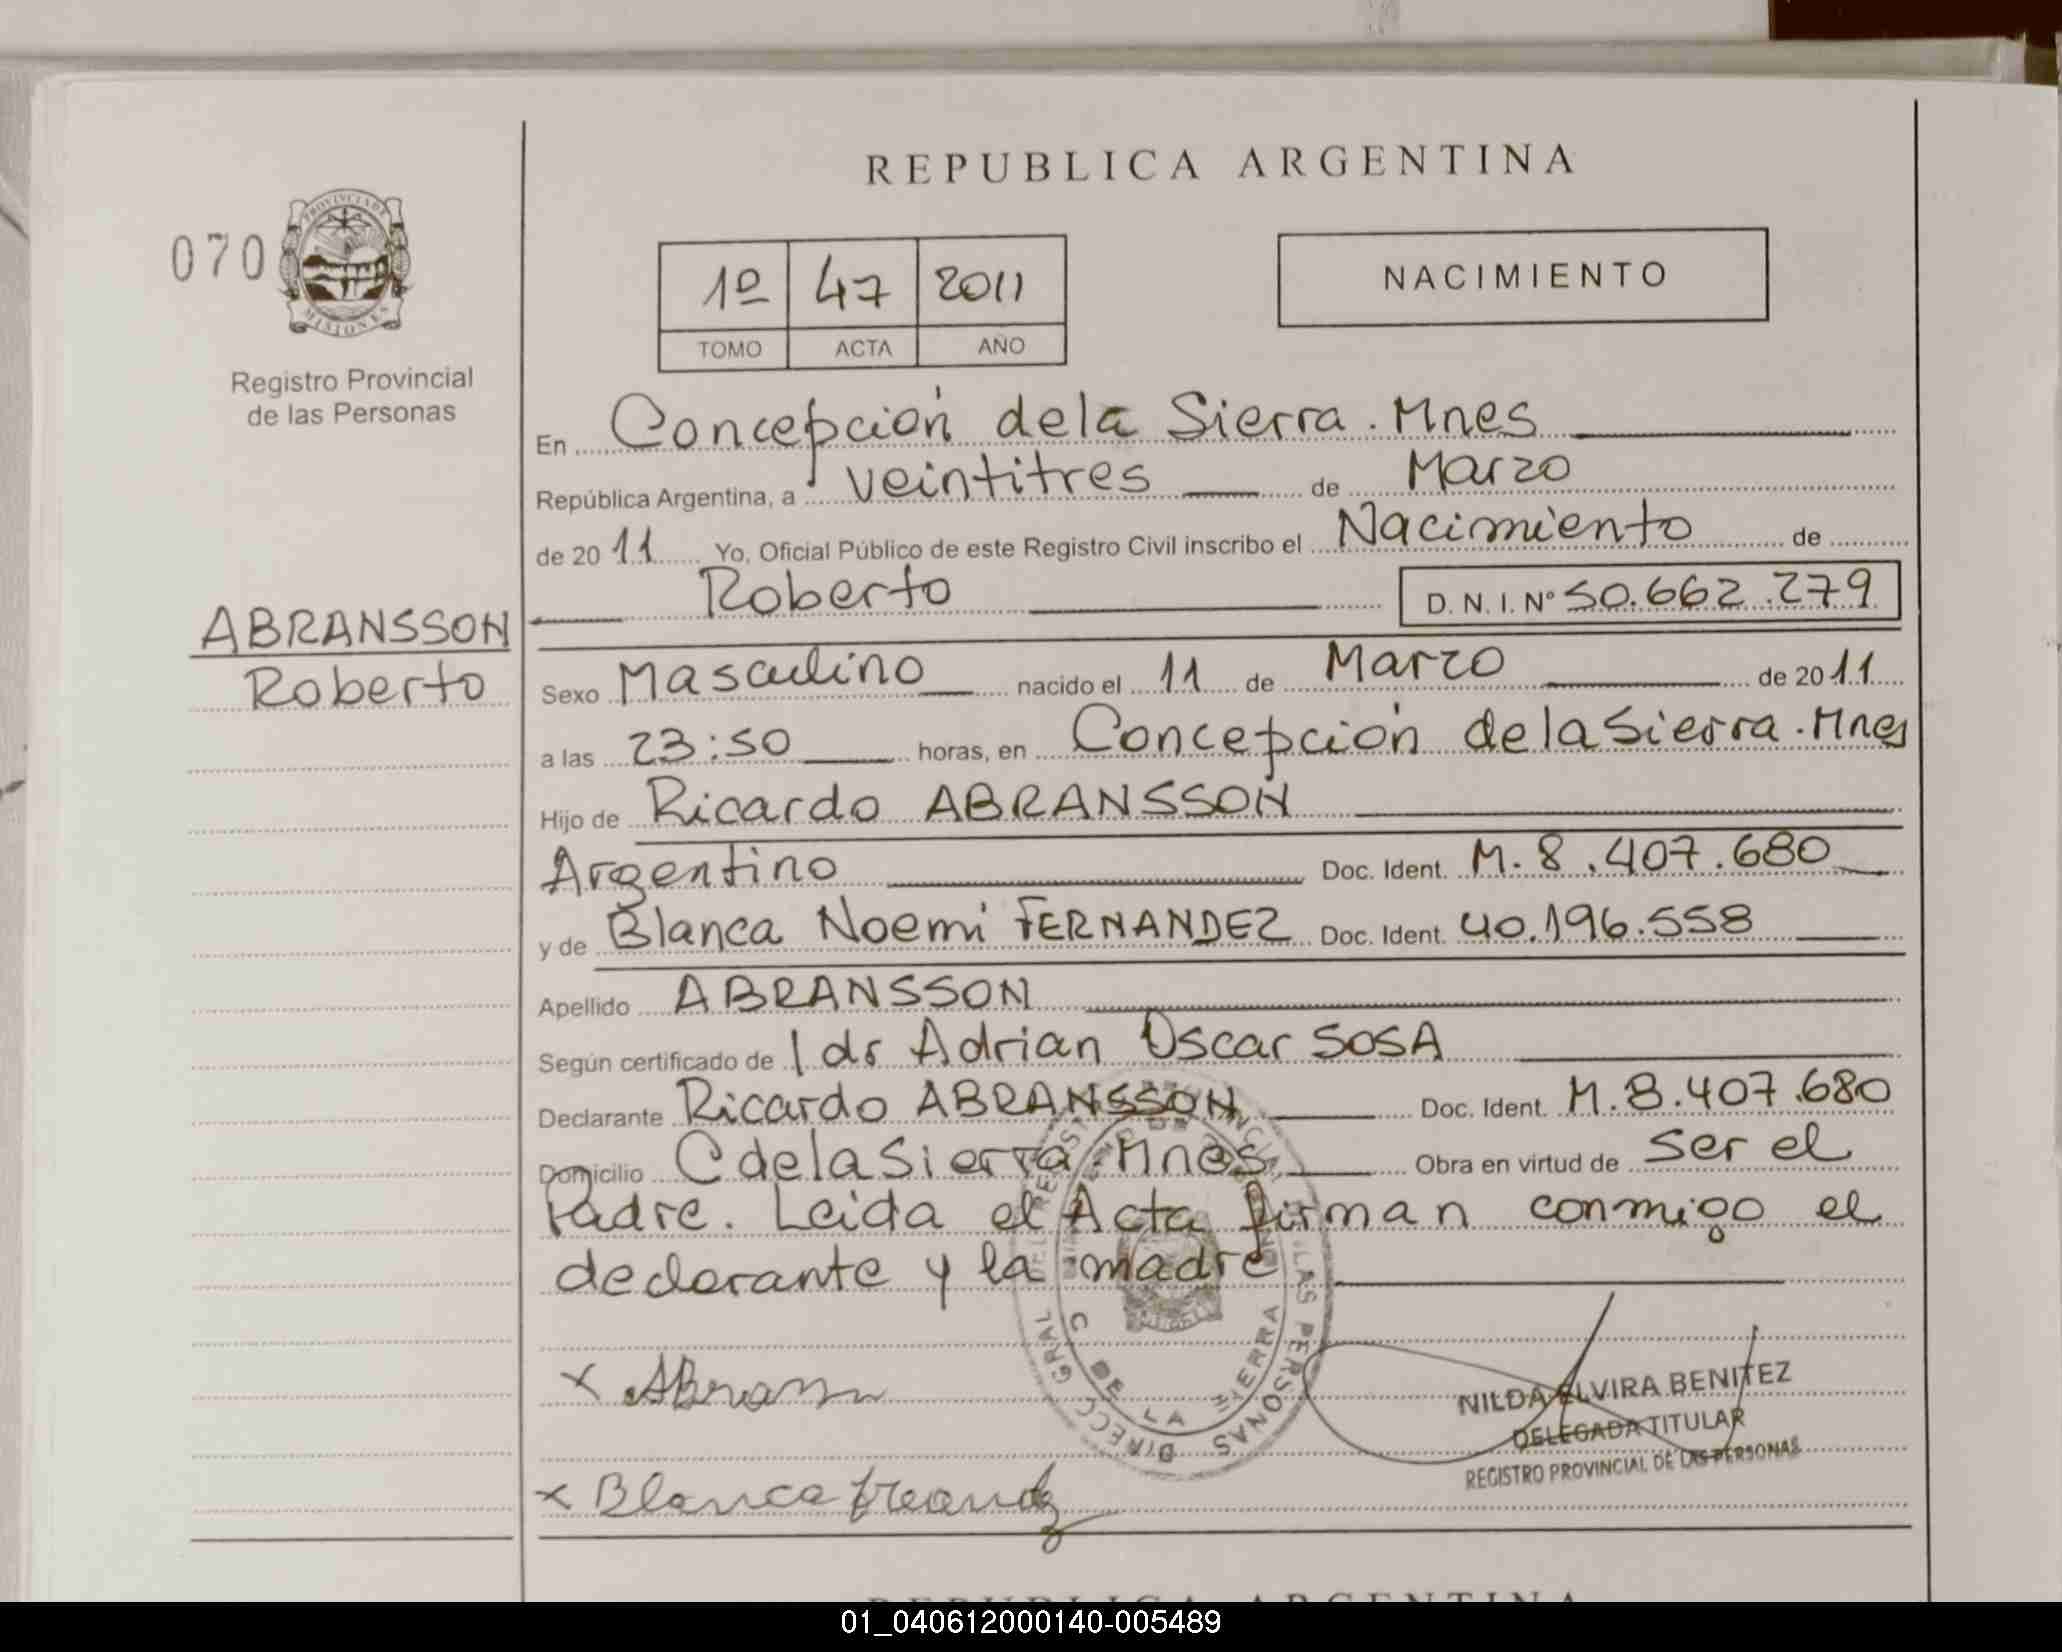 REPUBLICA ARGENTINA
070
PROVINCIA DE
MISIONES
Registro Provincial
de las Personas
1º 47 2011
TOMO ACTA AÑO
NACIMIENTO
En Concepción de la Sierra. Mnes
República Argentina, a veintitres de Marzo
de 2011 Yo, Oficial Público de este Registro Civil inscribo el Nacimiento de
Roberto D.N.I. Nº 50.662.279
ABRANSSON
Roberto
Sexo Masculino nacido el 11 de Marzo de 2011
a las 23:50 horas, en Concepción de la Sierra. Mnes
Hijo de Ricardo ABRANSSON
Argentino Doc. Ident. M. 8.407.680
y de Blanca Noemi FERNANDEZ Doc. Ident. 40.196.558
Apellido ABRANSSON
Según certificado de l dr Adrian Oscar SOSA
Declarante Ricardo ABRANSSON Doc. Ident. M. 8.407.680
Domicilio C de la Sierra. Mnes Obra en virtud de ser el
Padre. Leida el Acta firman conmigo el
declarante y la madre
DIRECC GRAL DEL LAS PERSONAS
C DE LA SIERRA
x Abransn
NILDA ELVIRA BENITEZ
DELEGADA TITULAR
REGISTRO PROVINCIAL DE LAS PERSONAS
x Blanca
REPUBLICA ARGENTINA
01_040612000140-005489